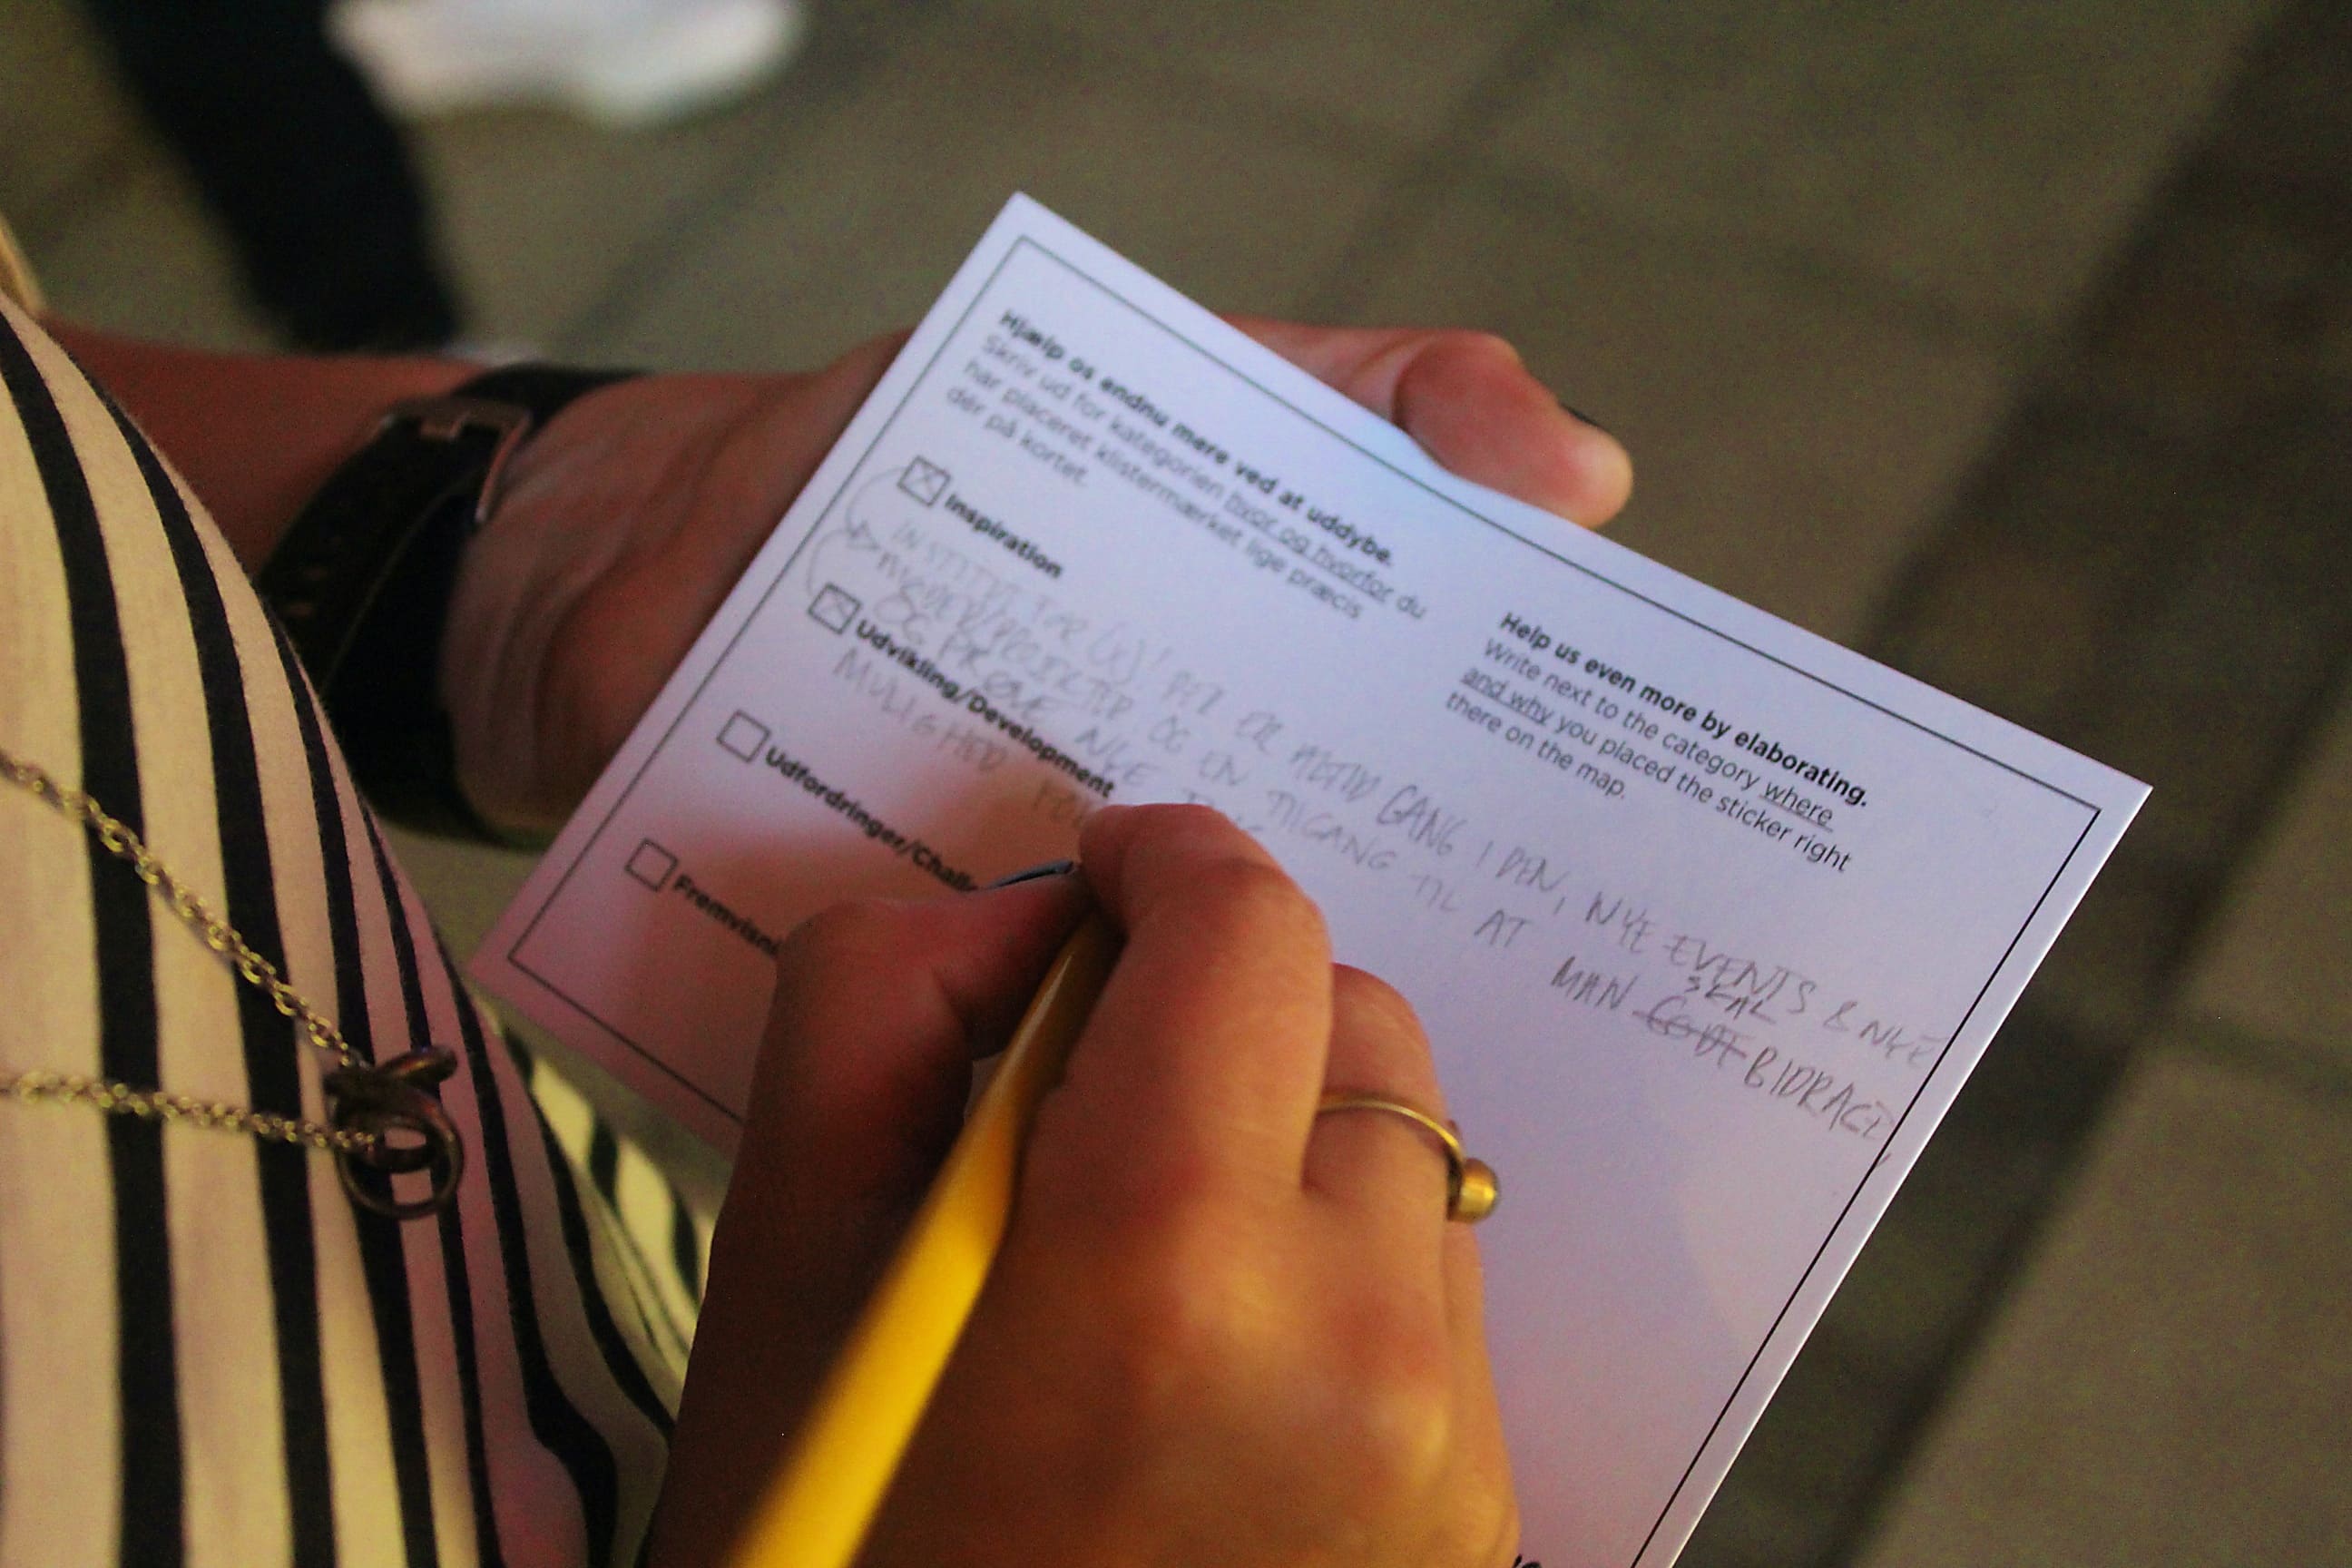 Hjælp os endnu mere ved at uddybe.
Skriv ud for kategorien hvor og hvorfor du
har placeret klistermærket lige præcis
dér på kortet.
Help us even more by elaborating.
Write next to the category where
and why you placed the sticker right
there on the map.
Inspiration
INSTITUT FOR (X)! DER ER ALTID GANG I DEN, NYE EVENTS & NYE
OG EN TILGANG TIL AT MAN SKAL BIDRAGE
Udvikling/Development
OG PRØVE NYE
MULIGHED FOR
Udfordringer/Chall
Fremvisni